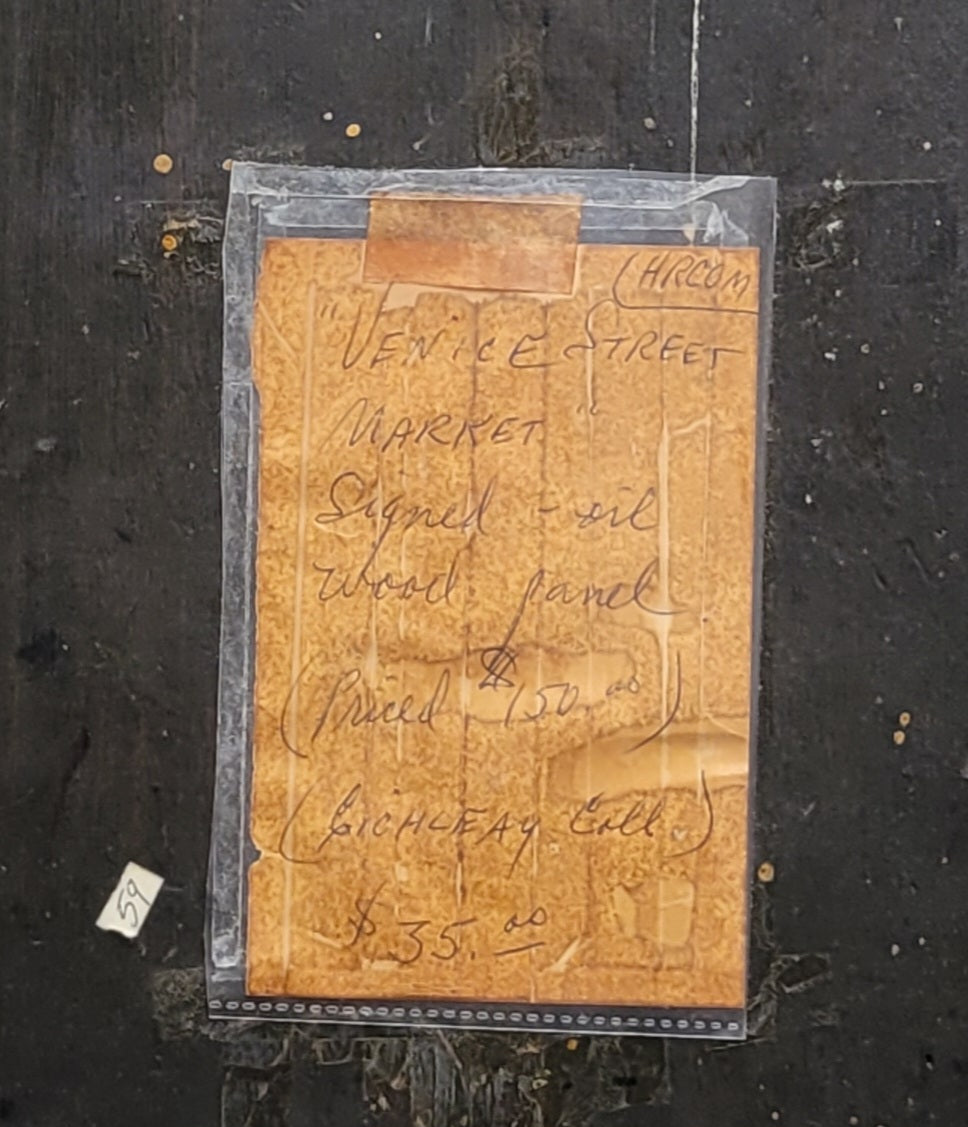 (HRCOM
"VENICE STREET
MARKET"
Signed - oil
wood panel
(Priced $150.00)
(EICHLEAY Coll.)
$35.00
59